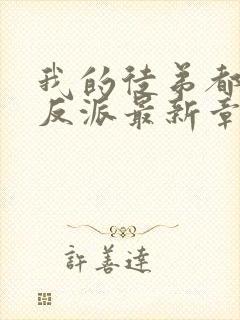 我的徒弟都
反派最新章
許善達